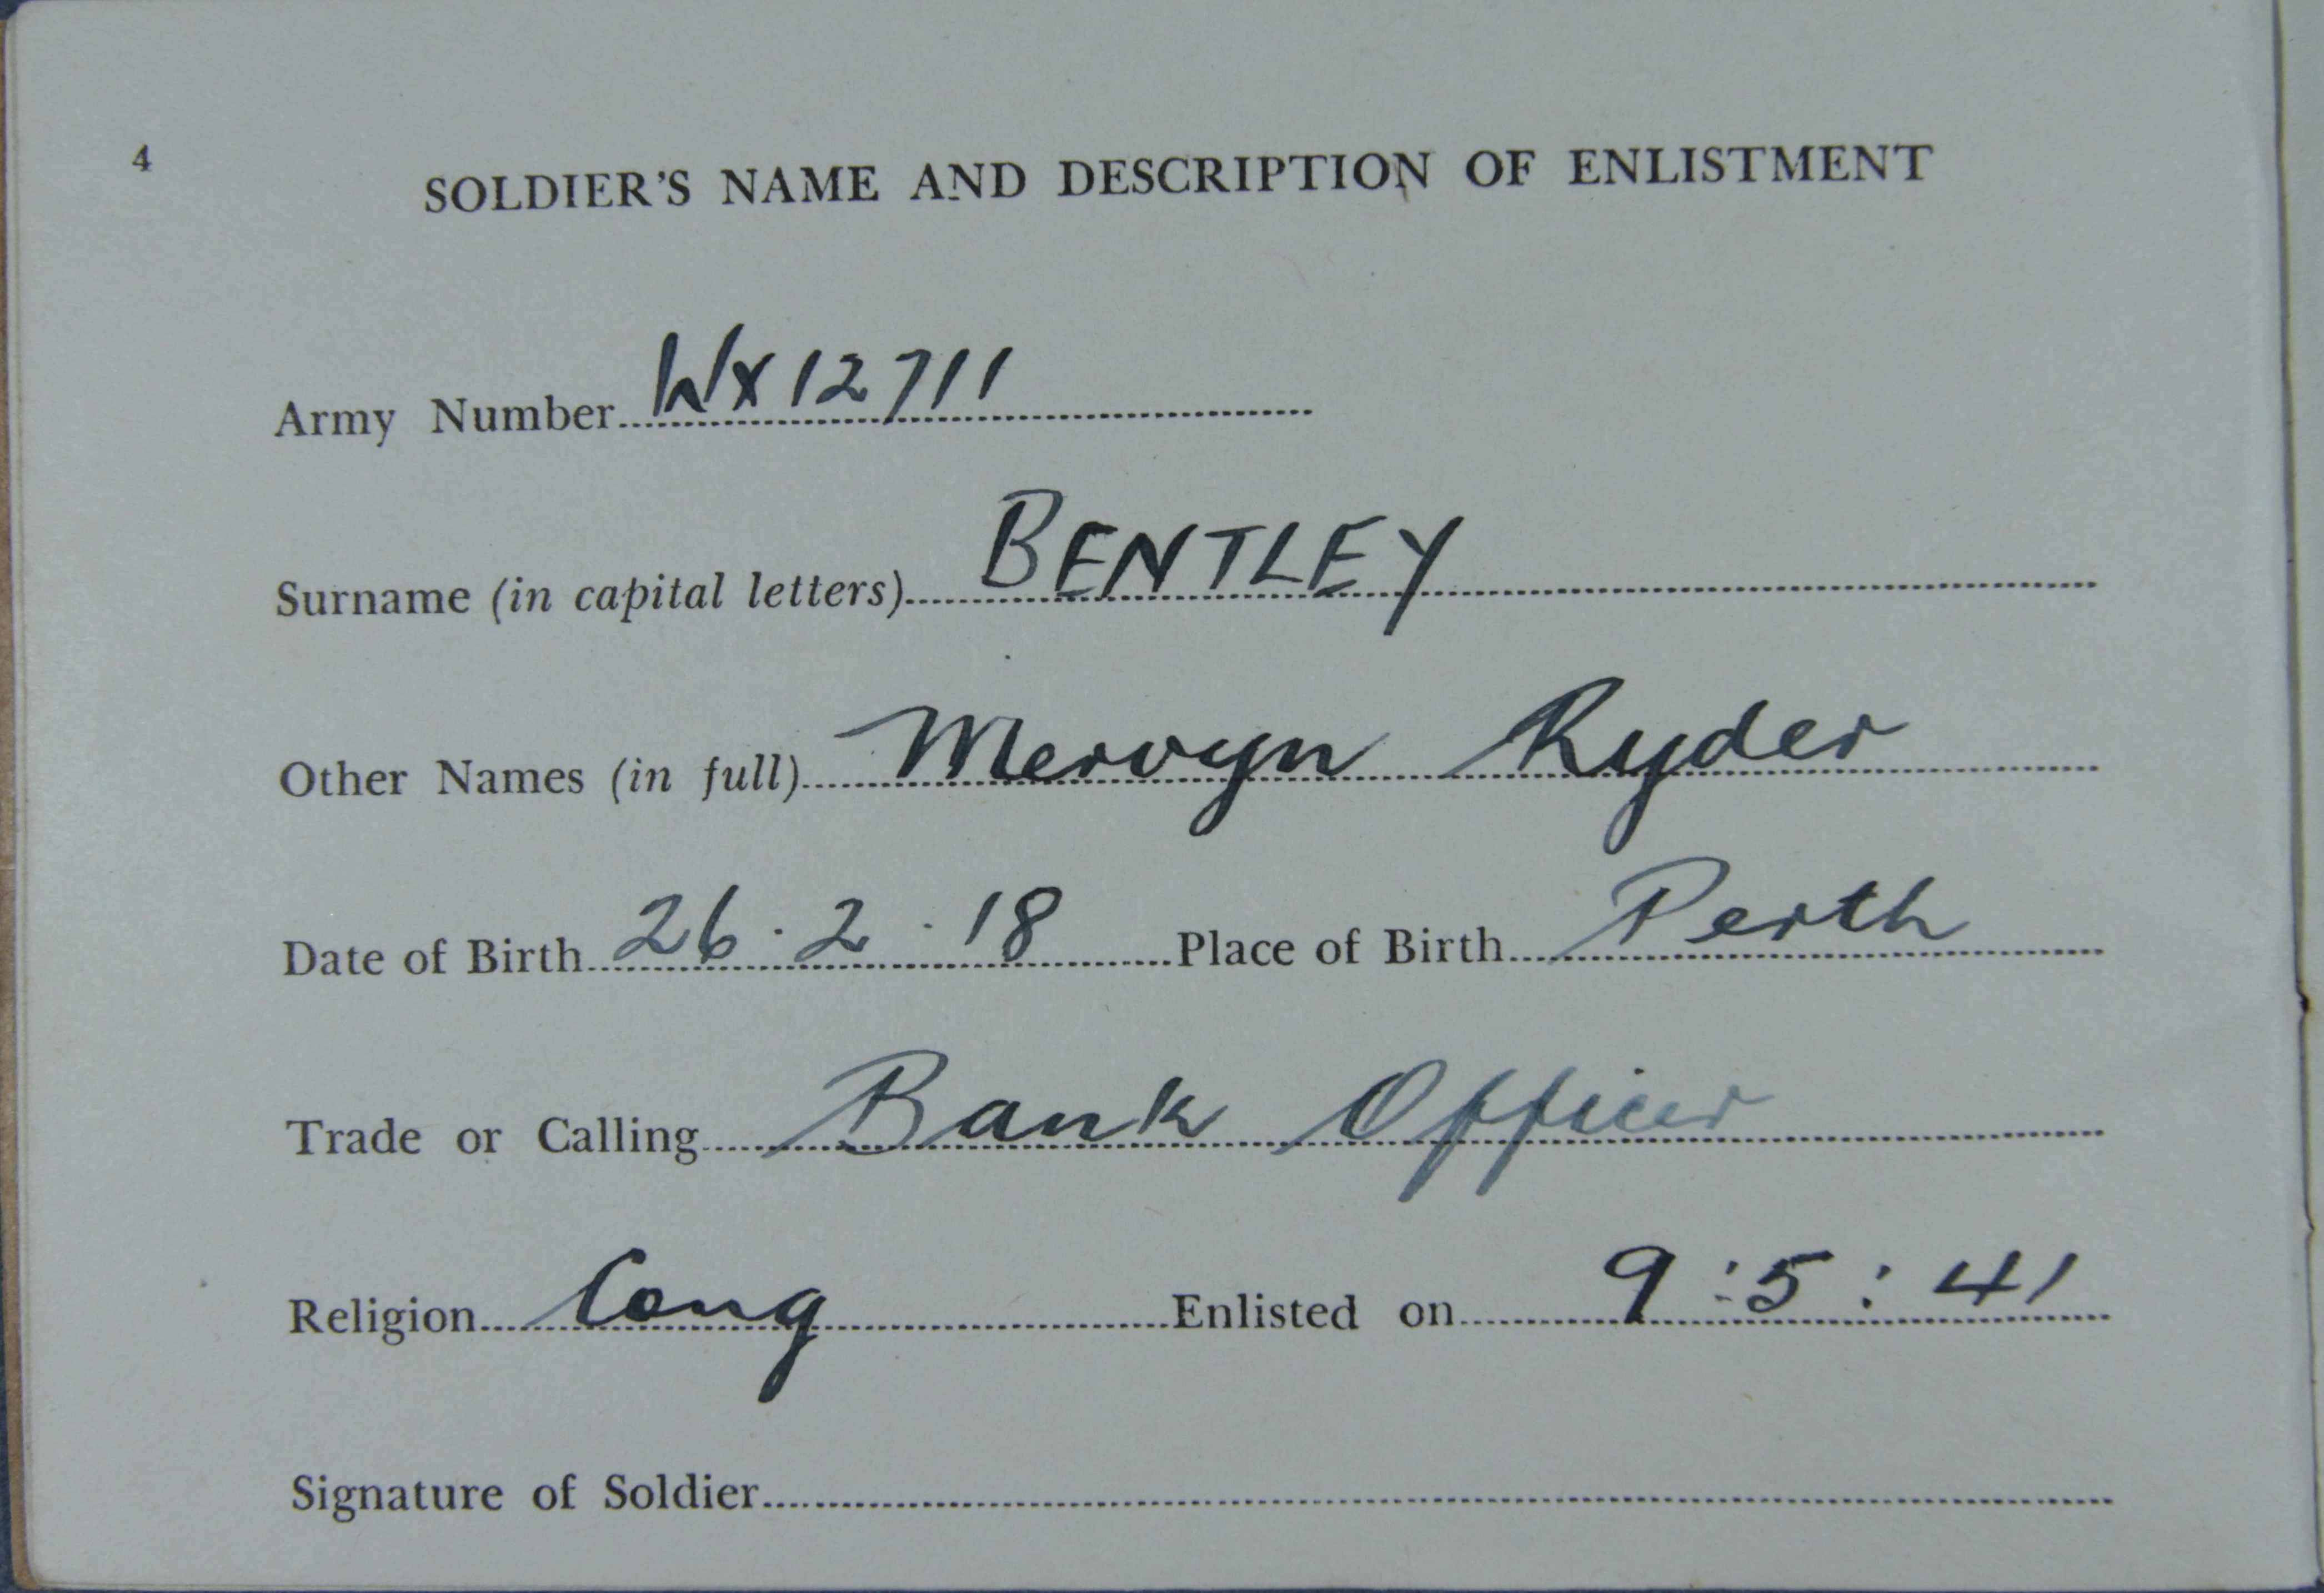 4
SOLDIER'S NAME AND DESCRIPTION OF ENLISTMENT
Army Number WX12711
Surname (in capital letters) BENTLEY
Other Names (in full) Mervyn Ryder
Date of Birth 26.2.18 Place of Birth Perth
Trade or Calling Bank Officer
Religion Cong Enlisted on 9:5:41
Signature of Soldier